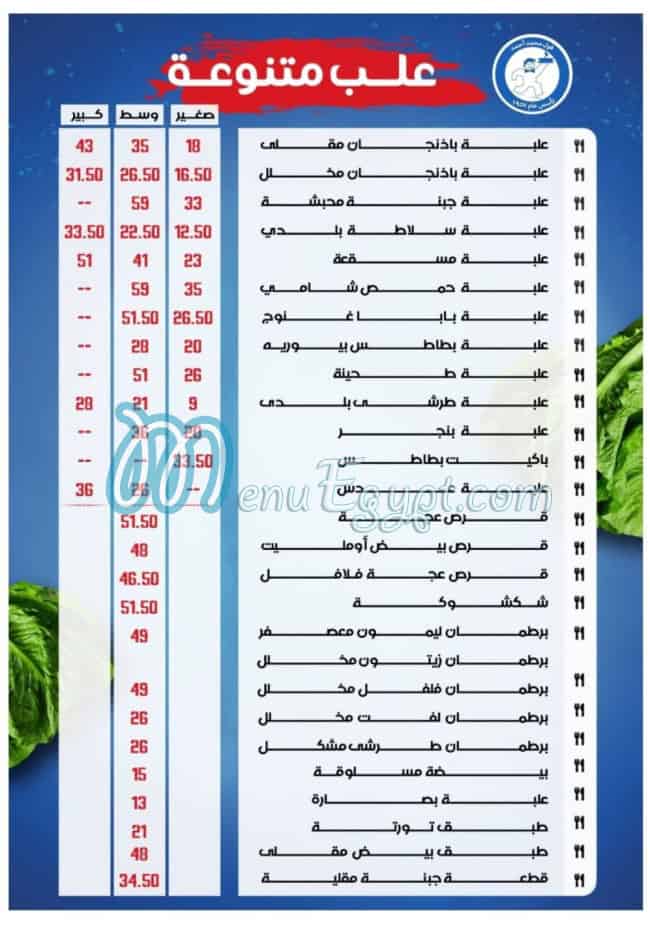 علب متنوعة
فول محمد أحمد
تأسس عام ١٩٥٧
صغير وسط كبير
علبة باذنجان مقلى 18 35 43
علبة باذنجان مخلل 16.50 26.50 31.50
علبة جبنة محبشة 33 59 --
علبة سلاطة بلدي 12.50 22.50 33.50
علبة مسقعة 23 41 51
علبة حمص شامي 35 59 --
علبة بابا غنوج 26.50 51.50 --
علبة بطاطس بيوريه 20 28 --
علبة طحينة 26 51 --
علبة طرشى بلدى 9 21 28
علبة بنجر 20 36 --
باكيت بطاطس 33.50 -- --
علبة عدس -- 26 36
MenuEgypt.com
قرص عجة 51.50
قرص بيض أومليت 48
قرص عجة فلافل 46.50
شكشوكة 51.50
برطمان ليمون معصفر 49
برطمان زيتون مخلل
برطمان فلفل مخلل 49
برطمان لفت مخلل 26
برطمان طرشى مشكل 26
بيضة مسلوقة 15
علبة بصارة 13
طبق تورتة 21
طبق بيض مقلى 48
قطعة جبنة مقلية 34.50